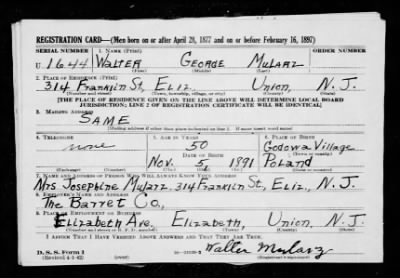 REGISTRATION CARD—(Men born on or after April 28, 1877 and on or before February 16, 1897)
SERIAL NUMBER 1. NAME (Print) ORDER NUMBER
U 1644 WALTER GEORGE MULARZ
(First) (Middle) (Last)
2. PLACE OF RESIDENCE (Print)
314 Franklin St, ELIZ. Union, N. J.
(Number and street) (Town, township, village, or city) (County) (State)
[THE PLACE OF RESIDENCE GIVEN ON THE LINE ABOVE WILL DETERMINE LOCAL BOARD
JURISDICTION; LINE 2 OF REGISTRATION CERTIFICATE WILL BE IDENTICAL]
3. MAILING ADDRESS
SAME
[Mailing address if other than place indicated on line 2. If same insert word same]
4. TELEPHONE 5. AGE IN YEARS 6. PLACE OF BIRTH
none 50 Godowa Village
DATE OF BIRTH (Town or county)
Nov. 5 1891 Poland
(Mo.) (Day) (Yr.) (State or country)
7. NAME AND ADDRESS OF PERSON WHO WILL ALWAYS KNOW YOUR ADDRESS
Mrs Josephine Mularz, 314 Franklin St, Eliz., N. J.
8. EMPLOYER'S NAME AND ADDRESS
The Barret Co,
9. PLACE OF EMPLOYMENT OR BUSINESS
Elizabeth Ave. Elizabeth, Union, N. J.
(Number and street or R. F. D. number) (Town) (County) (State)
I AFFIRM THAT I HAVE VERIFIED ABOVE ANSWERS AND THAT THEY ARE TRUE.
D. S. S. Form 1
(Revised 4-1-42)
Walter Mularz